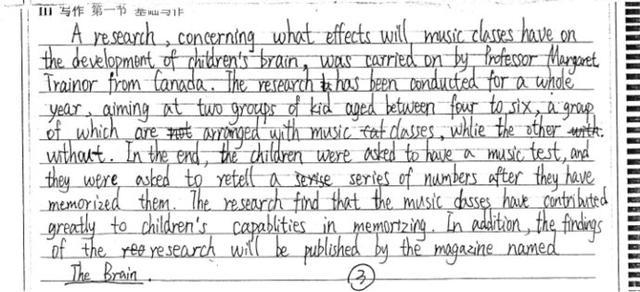 III 写作 第一节 基础写作
A research, concerning what effects will music classes have on
the development of children's brain, was carried on by Professor Margaret
Trainor from Canada. The research has been conducted for a whole
year, aiming at two groups of kid aged between four to six, a group
of which are arranged with music classes, whlie the other
without. In the end, the children were asked to have a music test, and
they were asked to retell a series of numbers after they have
memorized them. The research find that the music classes have contributed
greatly to children's capablities in memorizing. In addition, the findings
of the research will be published by the magazine named
The Brain.
3